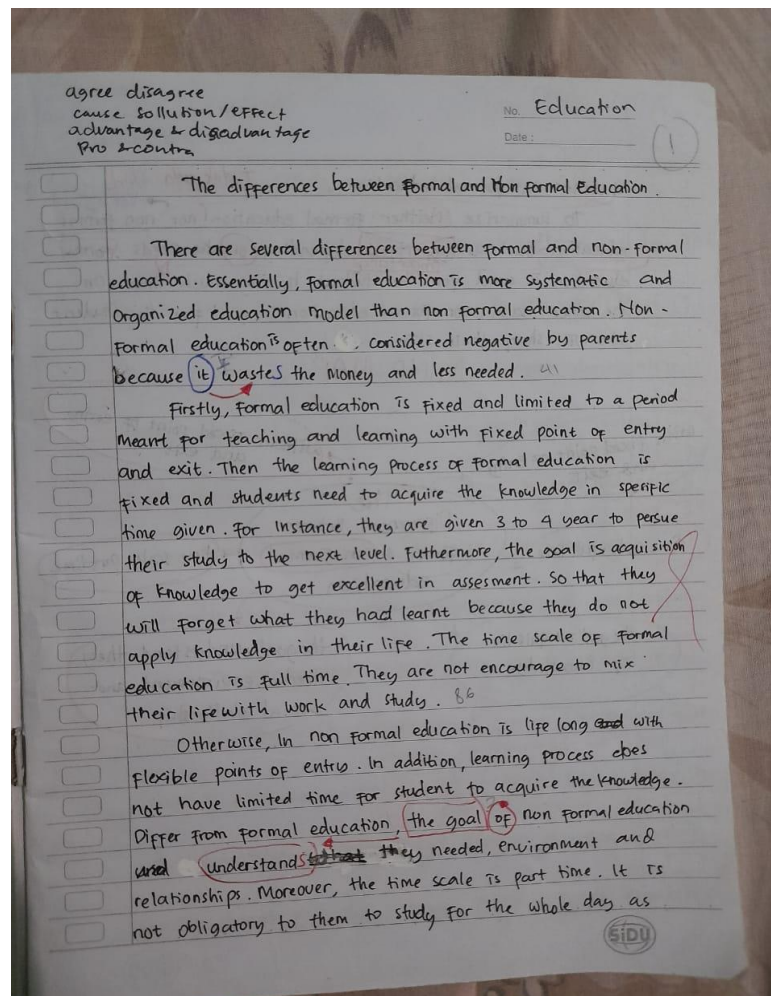 agree disagree
cause sollution/effect
advantage & disadvantage
Pro & contra
No. Education
Date :
1
The differences between Formal and Non formal Education.
There are several differences between formal and non-formal
education. Essentially, formal education is more systematic and
organized education model than non formal education. Non-
formal education is often considered negative by parents
because it wastes the money and less needed. 41
Firstly, formal education is fixed and limited to a period
meant for teaching and learning with fixed point of entry
and exit. Then the learning process of formal education is
fixed and students need to acquire the knowledge in spesific
time given. For instance, they are given 3 to 4 year to persue
their study to the next level. Futhermore, the goal is acquisition
of knowledge to get excellent in assesment. So that they
will forget what they had learnt because they do not
apply knowledge in their life. The time scale of formal
education is full time. They are not encourage to mix
their life with work and study. 86
Otherwise, In non formal education is life long and with
flexible points of entry. In addition, learning process does
not have limited time for student to acquire the knowledge.
Differ from formal education, the goal of non formal education
understands that they needed, environment and
relationships. Moreover, the time scale is part time. It is
not obligatory to them to study for the whole day as
SiDU